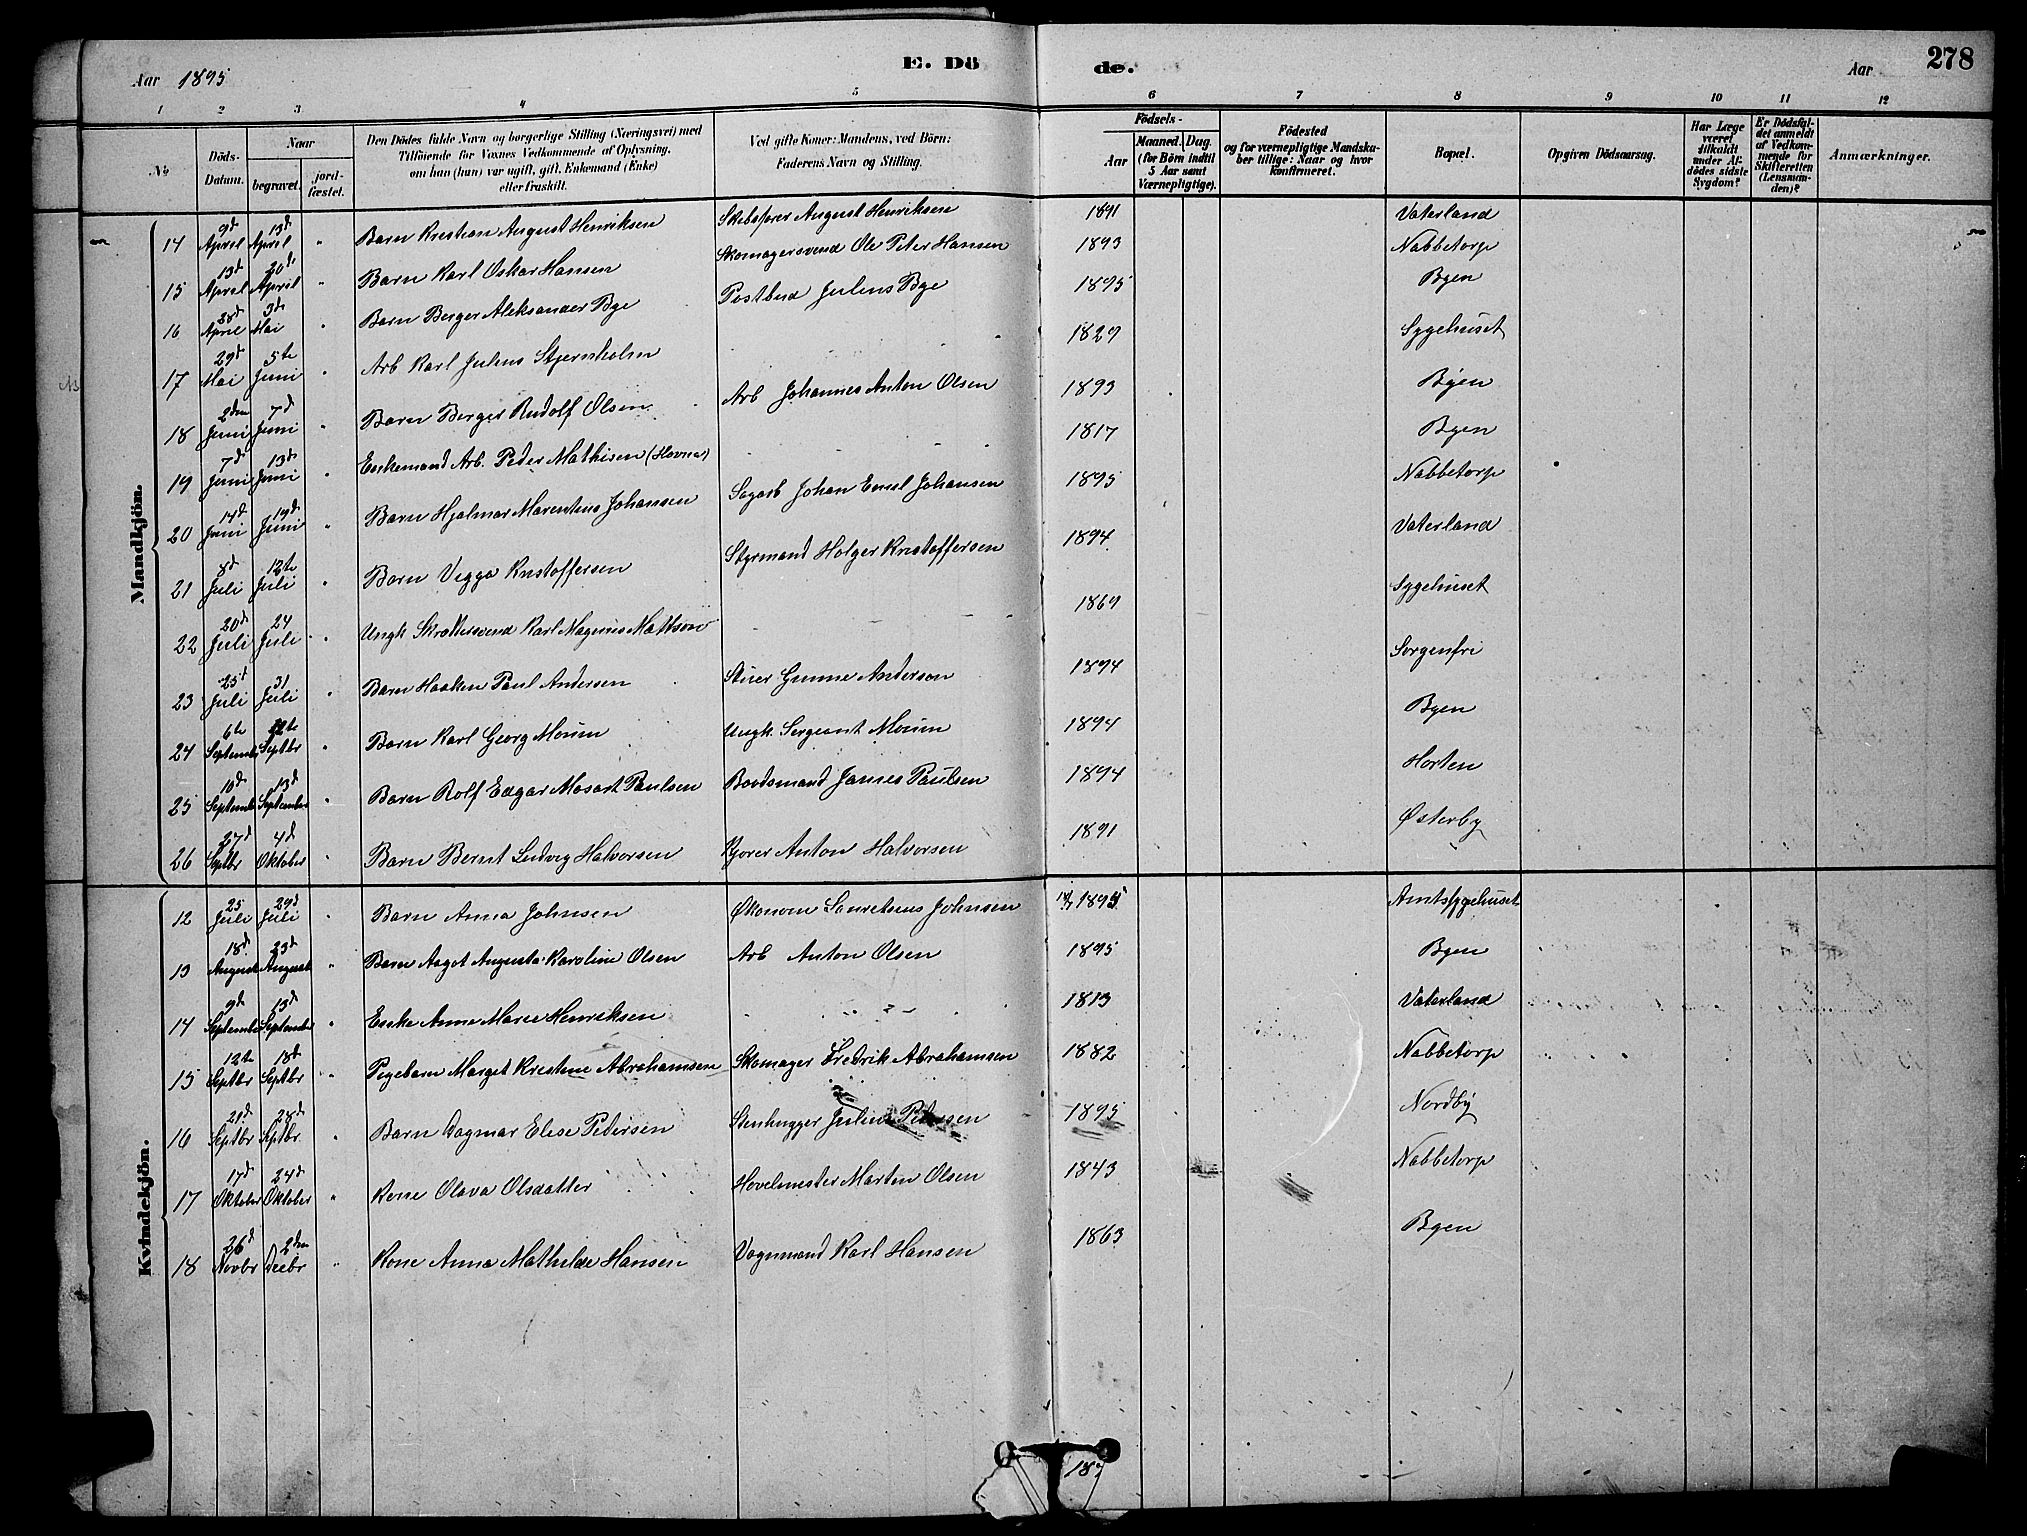 Aar 1895 E. Dö de. Aar 278
1 2 3 4 5 6 7 8 9 10 11 12
№ Döds-Datum. Naar begravet. jordfæstet. Den Dödes fulde Navn og borgerlige Stilling (Næringsvei) med Tilföiende for Voxnes Vedkommende af Oplysning, om han (hun) var ugift, gift, Enkemand (Enke) eller fraskilt. Ved gifte Koner: Mandens, ved Börn: Faderens Navn og Stilling. Födsels- Aar Maaned. Dag. (for Börn indtil 5 Aar samt Værnepligtige). Födested og for værnepligtige Mandskaber tillige: Naar og hvor konfirmeret. Bopæl. Opgiven Dödsaarsag. Har Læge været tilkaldt under Afdödes sidste Sygdom? Er Dödsfaldet anmeldt af Vedkommende for Skifteretten (Lensmanden)? Anmærkninger.
Mandkjön.
14 9d April 13d April " Barn Kristian August Henriksen August Henriksen 1891 Vaterland
15 13d April 20de April " Barn Karl Oskar Hansen Skomagersvend Ole Peter Hansen 1893 Nabbetorp
16 28d April 3de Mai " Barn Berger Aleksander Bye Postbud Julius Bye 1895 Byen
17 29d Mai 5te Juni " Arb Karl Julius Stjernholm 1829 Sygehuset
18 2den Juni 7d Juni " Barn Berger Rudolf Olsen Arb Johannes Anton Olsen 1893 Byen
19 7d Juni 13de Juni " Enkemand Arb. Peder Mathisen 1817 Byen
20 14d Juni 19d Juni " Barn Hjalmar Marentius Johansen Sagarb Johan Emil Johansen 1895 Nabbetorp
21 8d Juli 12te Juli " Barn Viggo Kristoffersen Styrmand Holger Kristoffersen 1894 Vaterland
22 20d Juli 24 Juli " Ungk Karl Magnus Mattson 1869 Sygehuset
23 25d Juli 31 Juli " Barn Haaken Paul Andersen Gunne Anderson 1894 Sorgenfri
24 6te September Septbr " Barn Karl Georg Moum Ungk Sergeant Moum 1894 Byen
25 10d September 13d September " Barn Rolf Edgar Mosart Paulsen Baadsmand James Paulsen 1894 Horten
26 27d Septbr 4d Oktober " Barn Bernt Ludvig Halvorsen Kjører Anton Halvorsen 1891 Østerby
Kvindekjön.
12 25 Juli 29d Juli " Barn Anna Johnsen Økonom Lauretsius Johnsen 1895 Amtssygehuset
13 18d August 23d August " Barn Aagot Augusta Karoline Olsen Arb Anton Olsen 1895 Byen
14 9de September 13d September " Enke Anne Marie Henriksen 1813 Vaterland
15 12te Septbr 18d Septbr " Pigebarn Marget Kristine Abrahamsen Skomager Fredrik Abrahamsen 1882 Nabbetorp
16 21d Septbr 28d Septbr " Barn Dagmar Elise Pedersen Stenhugger Julius Pedersen 1895 Nordby
17 17d Oktober 24d Oktober " Kone Olava Olsdatter Høvelmester Martin Olsen 1843 Nabbetorp
18 26d Novbr 2den Decbr " Kone Anna Mathilde Hansen Vognmand Karl Hansen 1863 Byen
187